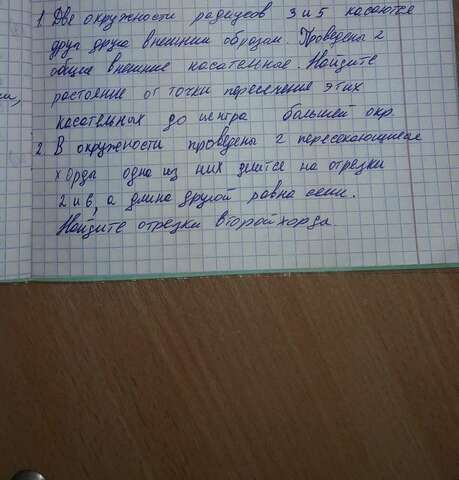 1 Две окружности радиусов 3 и 5 касаются
друг друга внешним образом. Проведены 2
общие внешние касательные. Найдите
растояние от точки пересечение этих
касательных до центра большей окр.
2. В окружности проведены 2 пересекающиеся
хорды одна из них делится на отрезки
2 и 6, а длина другой равна семи.
Найдите отрезки второй хорда.